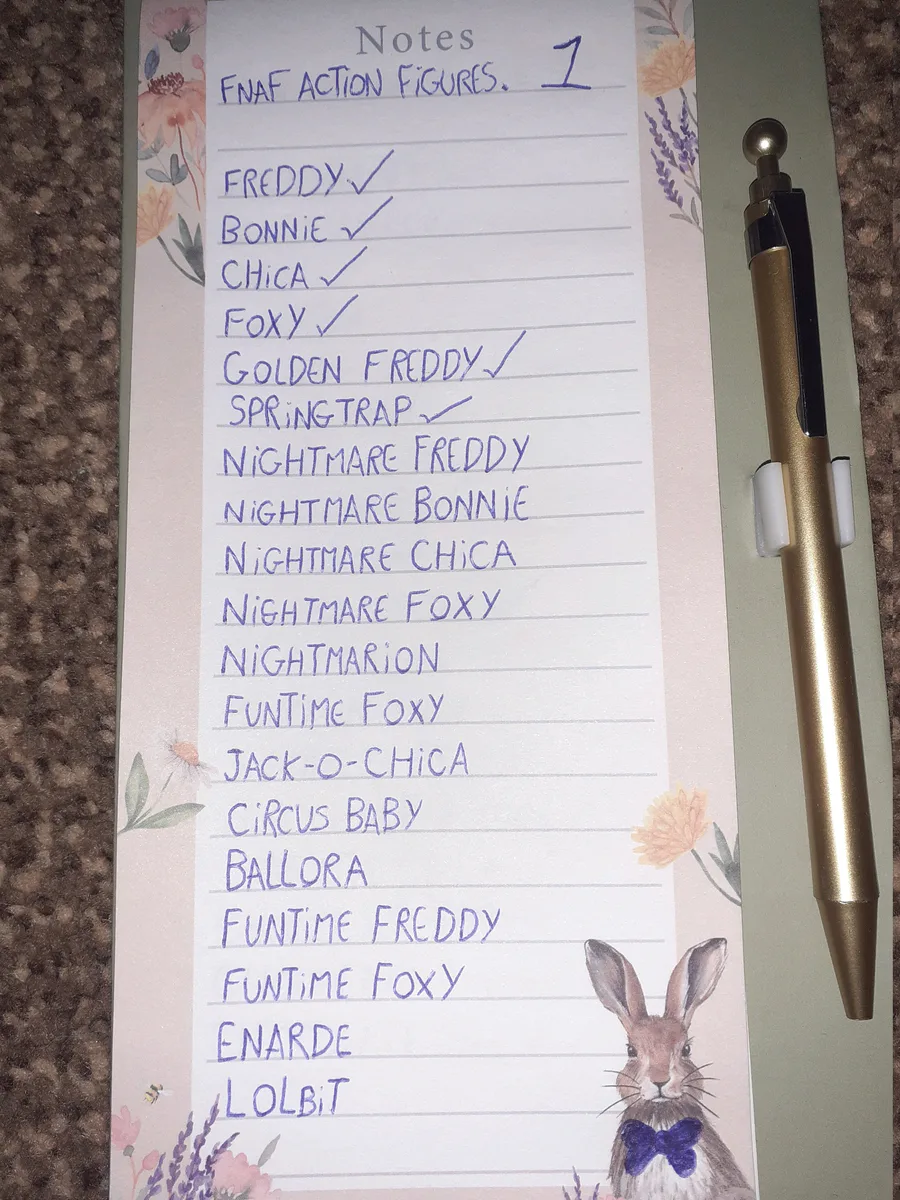 Notes
FNAF ACTION FIGURES. 1
FREDDY ✓
BONNIE ✓
CHICA ✓
FOXY ✓
GOLDEN FREDDY ✓
SPRINGTRAP ✓
NIGHTMARE FREDDY
NIGHTMARE BONNIE
NIGHTMARE CHICA
NIGHTMARE FOXY
NIGHTMARION
FUNTIME FOXY
JACK-O-CHICA
CIRCUS BABY
BALLORA
FUNTIME FREDDY
FUNTIME FOXY
ENARDE
LOLBIT